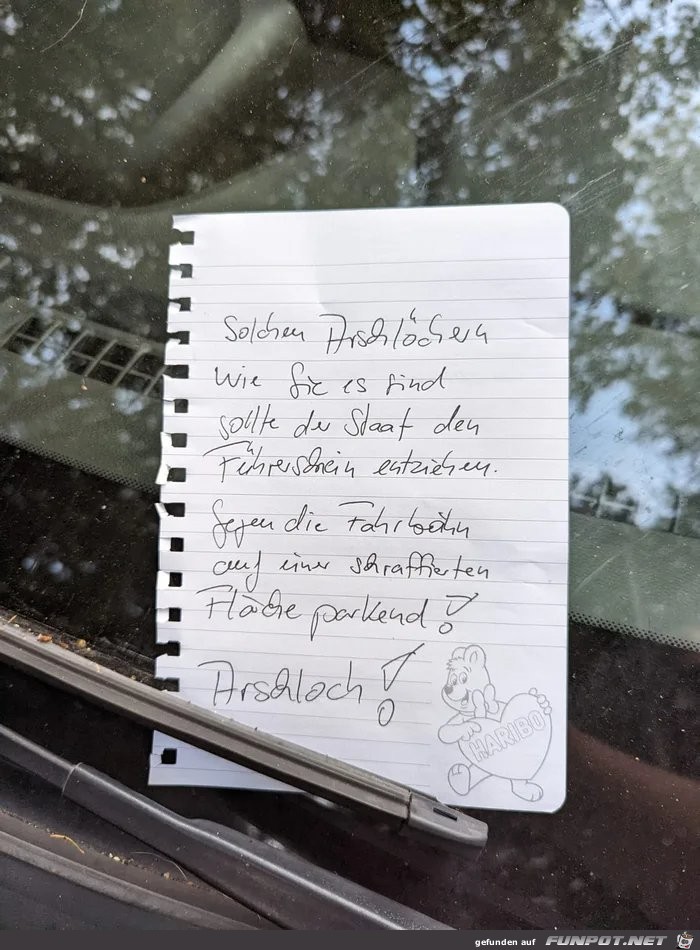 Solchen Arschlöchern
wie Sie es sind
sollte der Staat den
Führerschein entziehen.
Gegen die Fahrbahn
auf einer schraffierten
Fläche parkend!
Arschloch!
HARIBO
gefunden auf FUNPOT.NET